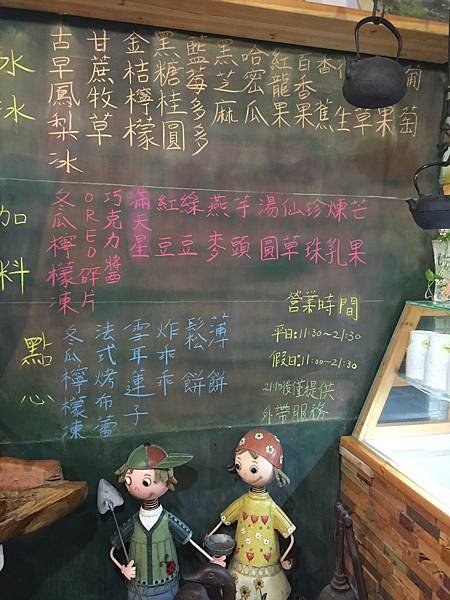 古早鳳梨冰
甘蔗牧草
金桔檸檬
黑糖桂圓
藍莓多多
黑芝麻
哈密瓜
紅龍果
百香果
香蕉
生
草
果
葡萄
加料
冬瓜檸檬凍
OREO碎片
巧克力醬
滿天星
紅豆
綠豆
燕麥
芋頭
湯圓
仙草
珍珠
煉乳
芒果
點心
冬瓜檸檬凍
法式烤布蕾
雪耳蓮子
炸乖乖
鬆餅
薄餅
營業時間
平日:11:30~21:30
假日:11:00~21:30
21:10後僅提供
外帶服務